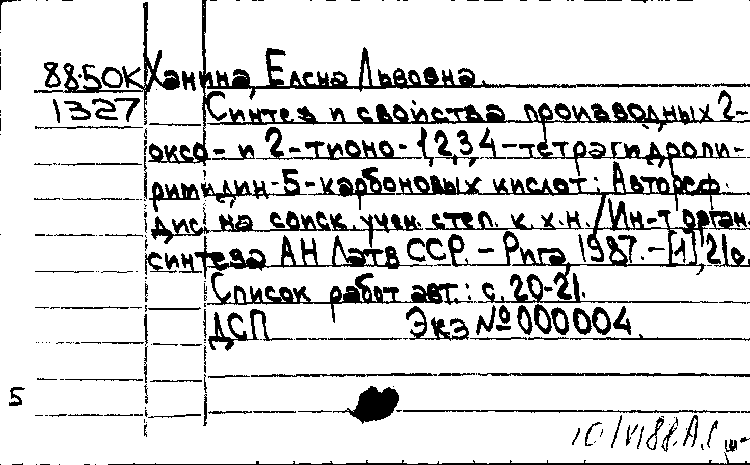 88-50К Ханина, Елена Львовна.
1327 Синтез и свойства производных 2-
оксо- и 2-тионо-1,2,3,4-тетрагидропи-
римидин-5-карбоновых кислот: Автореф.
дис. на соиск. учен. степ. к.х.н. / Ин-т орган.
синтеза АН Латв ССР. - Рига, 1987. - [1], 21 с.
Список работ авт.: с. 20-21.
ДСП Экз № 000004.
5